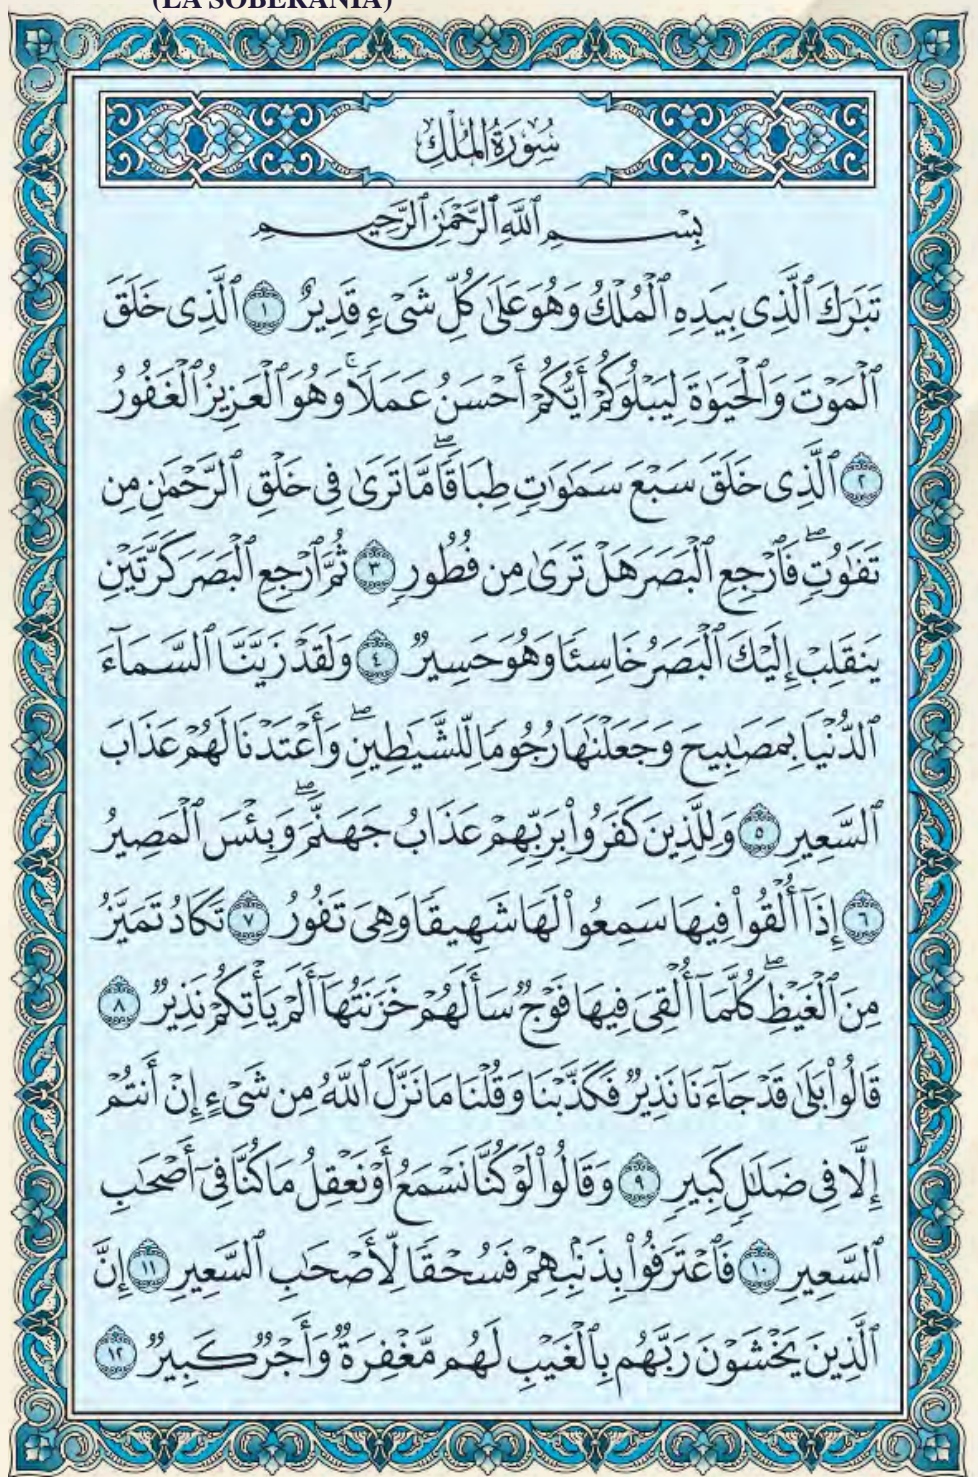 (LA SOBERANÍA)
سُورَةُ الْمُلْكِ
بِسْمِ ٱللَّهِ ٱلرَّحْمَٰنِ ٱلرَّحِيمِ
تَبَٰرَكَ ٱلَّذِى بِيَدِهِ ٱلْمُلْكُ وَهُوَ عَلَىٰ كُلِّ شَىْءٍ قَدِيرٌ ١ ٱلَّذِى خَلَقَ
ٱلْمَوْتَ وَٱلْحَيَوٰةَ لِيَبْلُوَكُمْ أَيُّكُمْ أَحْسَنُ عَمَلًا ۚ وَهُوَ ٱلْعَزِيزُ ٱلْغَفُورُ
٢ ٱلَّذِى خَلَقَ سَبْعَ سَمَٰوَٰتٍ طِبَاقًا ۖ مَّا تَرَىٰ فِى خَلْقِ ٱلرَّحْمَٰنِ مِن
تَفَٰوُتٍ ۖ فَٱرْجِعِ ٱلْبَصَرَ هَلْ تَرَىٰ مِن فُطُورٍ ٣ ثُمَّ ٱرْجِعِ ٱلْبَصَرَ كَرَّتَيْنِ
يَنقَلِبْ إِلَيْكَ ٱلْبَصَرُ خَاسِئًا وَهُوَ حَسِيرٌ ٤ وَلَقَدْ زَيَّنَّا ٱلسَّمَآءَ
ٱلدُّنْيَا بِمَصَٰبِيحَ وَجَعَلْنَٰهَا رُجُومًا لِّلشَّيَٰطِينِ ۖ وَأَعْتَدْنَا لَهُمْ عَذَابَ
ٱلسَّعِيرِ ٥ وَلِلَّذِينَ كَفَرُوا۟ بِرَبِّهِمْ عَذَابُ جَهَنَّمَ ۖ وَبِئْسَ ٱلْمَصِيرُ
٦ إِذَآ أُلْقُوا۟ فِيهَا سَمِعُوا۟ لَهَا شَهِيقًا وَهِىَ تَفُورُ ٧ تَكَادُ تَمَيَّزُ
مِنَ ٱلْغَيْظِ ۖ كُلَّمَآ أُلْقِىَ فِيهَا فَوْجٌ سَأَلَهُمْ خَزَنَتُهَآ أَلَمْ يَأْتِكُمْ نَذِيرٌ ٨
قَالُوا۟ بَلَىٰ قَدْ جَآءَنَا نَذِيرٌ فَكَذَّبْنَا وَقُلْنَا مَا نَزَّلَ ٱللَّهُ مِن شَىْءٍ إِنْ أَنتُمْ
إِلَّا فِى ضَلَٰلٍ كَبِيرٍ ٩ وَقَالُوا۟ لَوْ كُنَّا نَسْمَعُ أَوْ نَعْقِلُ مَا كُنَّا فِىٓ أَصْحَٰبِ
ٱلسَّعِيرِ ١٠ فَٱعْتَرَفُوا۟ بِذَنۢبِهِمْ فَسُحْقًا لِّأَصْحَٰبِ ٱلسَّعِيرِ ١١ إِنَّ
ٱلَّذِينَ يَخْشَوْنَ رَبَّهُم بِٱلْغَيْبِ لَهُم مَّغْفِرَةٌ وَأَجْرٌ كَبِيرٌ ١٢